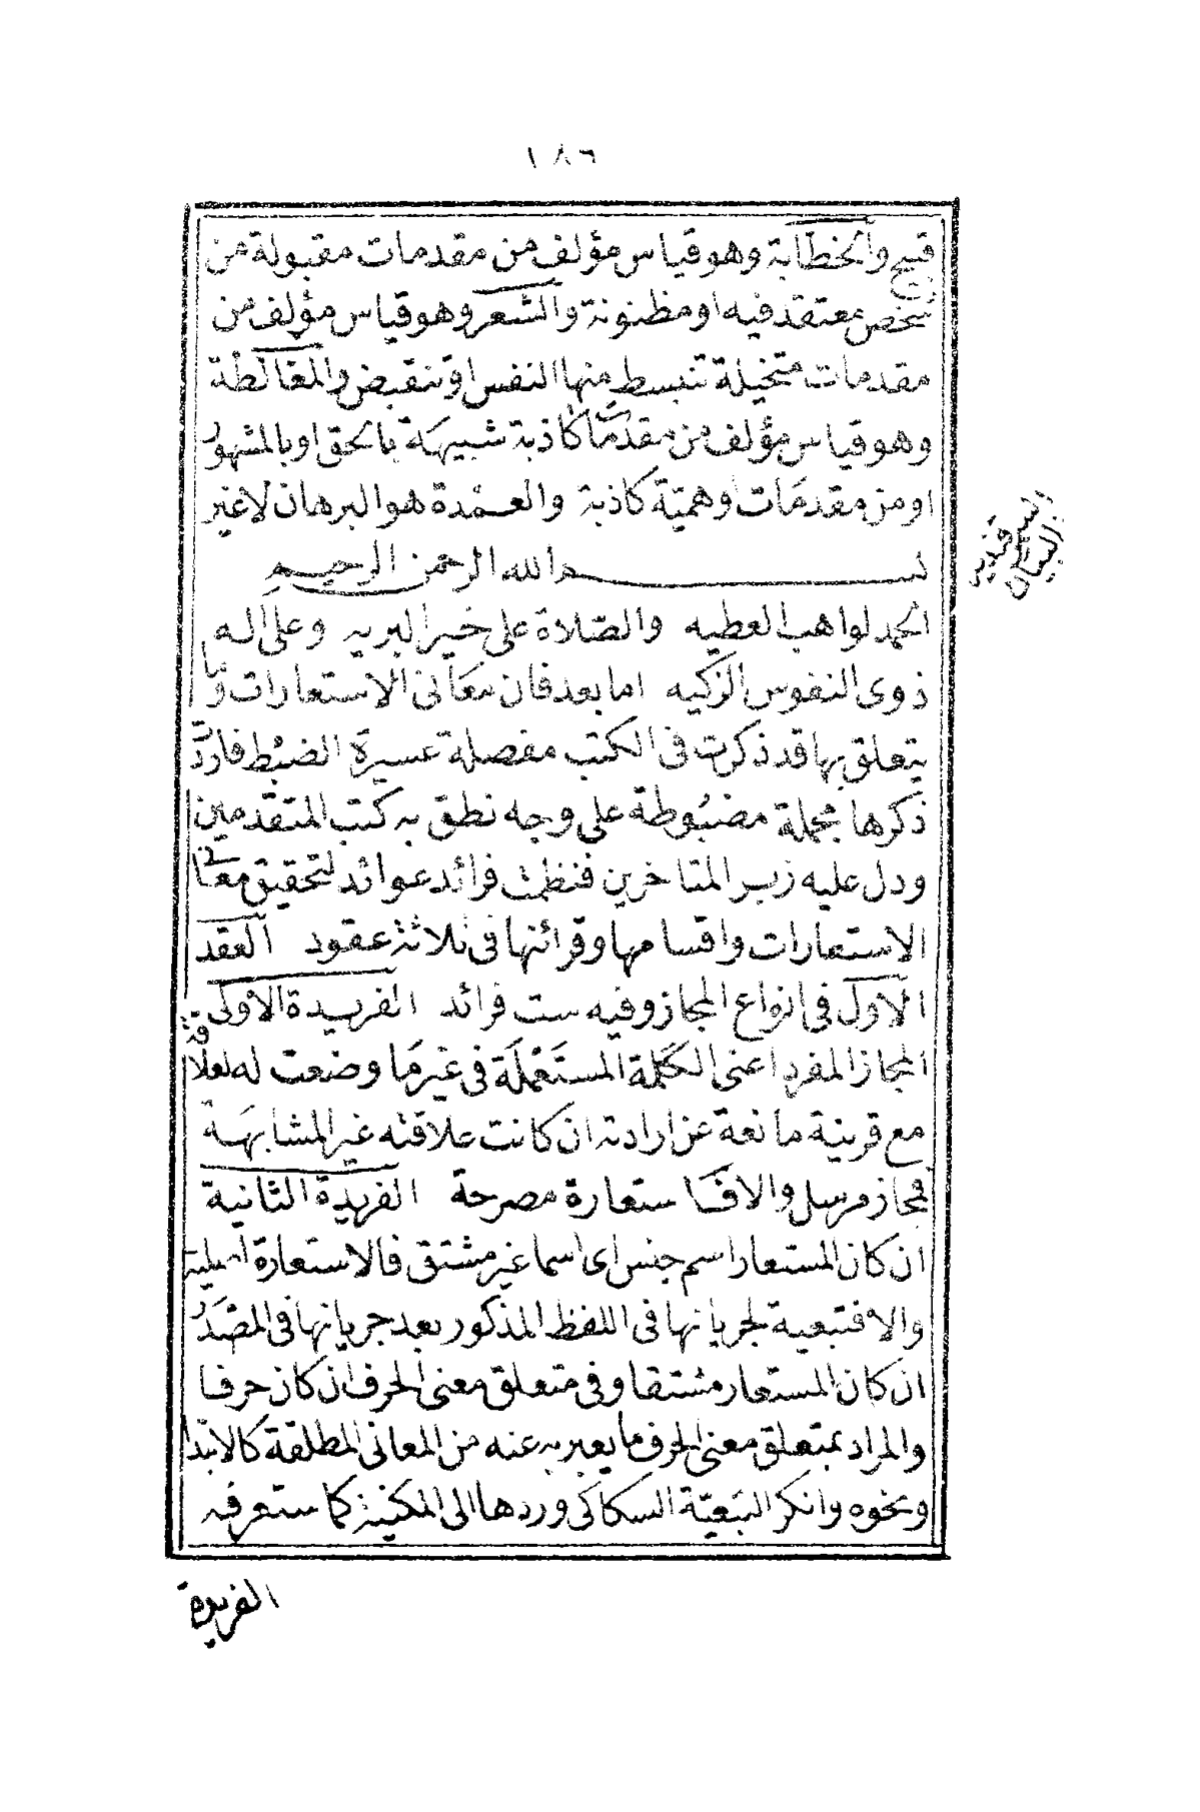 ١٨٦
قبيح والخطابة وهو قياس مؤلف من مقدمات مقبولة من
شخص معتقد فيه او مظنونة والشعر وهو قياس مؤلف من
مقدمات متخيلة تنبسط منها النفس او تنقبض والمغالطة
وهو قياس مؤلف من مقدمات كاذبة شبيهة بالحق او بالمشهور
او من مقدمات وهمية كاذبة والعمدة هو البرهان لا غير
السمرقندية
البيان
بسم الله الرحمن الرحيم
الحمد لواهب العطيه والصلاة على خير البريه وعلى اله
ذوى النفوس الزكيه اما بعد فان معانى الاستعارات وما
يتعلق بها قد ذكرت فى الكتب مفصلة عسيرة الضبط فاردت
ذكرها مجملة مضبوطة على وجه نطق به كتب المتقدمين
ودل عليه زبر المتاخرين فنظمت فرائد عوائد لتحقيق معانى
الاستعارات واقسامها وقرائنها فى ثلاثة عقود العقد
الاول فى انواع المجاز وفيه ست فرائد الفريدة الاولى
المجاز المفرد اعنى الكلمة المستعملة فى غير ما وضعت له لعلاقة
مع قرينة مانعة عن ارادته ان كانت علاقته غير المشابهة
فمجاز مرسل والا فاستعارة مصرحة الفريدة الثانية
ان كان المستعار اسم جنس اى اسما غير مشتق فالاستعارة اصلية
والا فتبعية لجريانها فى اللفظ المذكور بعد جريانها فى المصدر
ان كان المستعار مشتقا وفى متعلق معنى الحرف ان كان حرفا
والمراد بمتعلق معنى الحرف ما يعبر به عنه من المعانى المطلقة كالابتداء
ونحوه وانكر التبعية السكاكى وردها الى المكنية كما ستعرفه
الفريدة